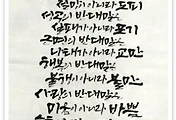 절망이 아니라 도피
성공의 반대말은
실패가 아니라 포기
의 반대말은
나태가 아니라 교만
행복의 반대말은
불행이 아니라 불만
사랑의 반대말은
미움이 아니라 바쁨